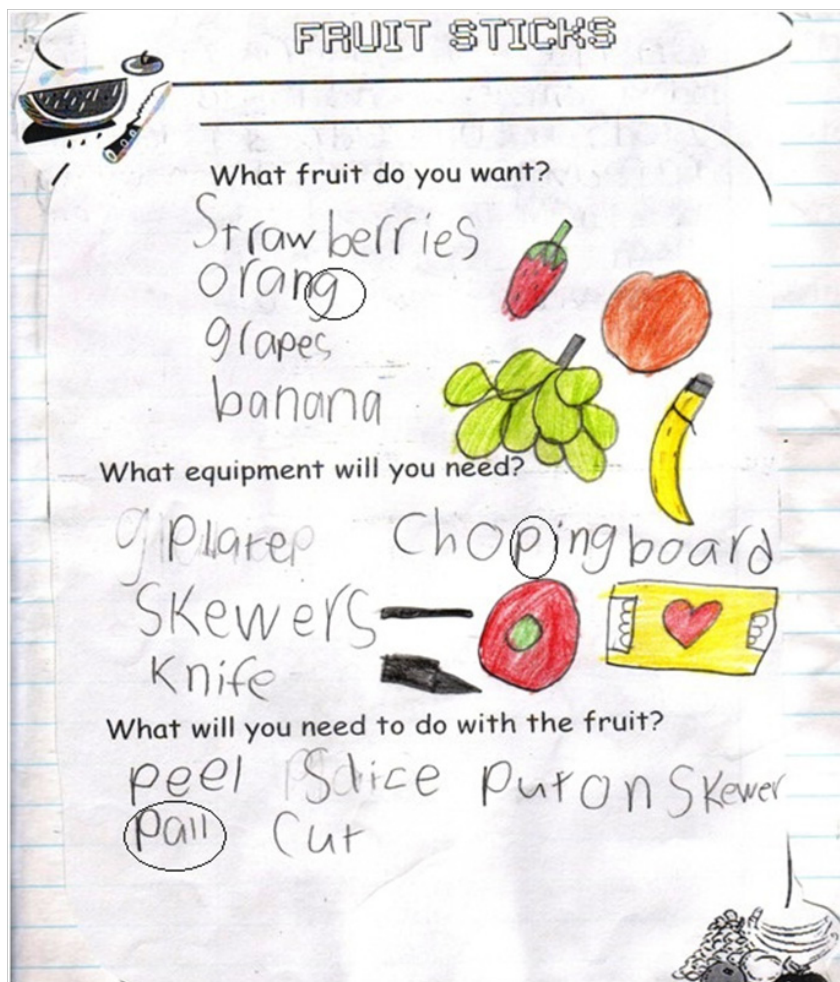 FRUIT STICKS
What fruit do you want?
Strawberries
orang
grapes
banana
What equipment will you need?
Plate Choping board
Skewers
Knife
What will you need to do with the fruit?
peel Slice Put on Skewer
Pall Cut